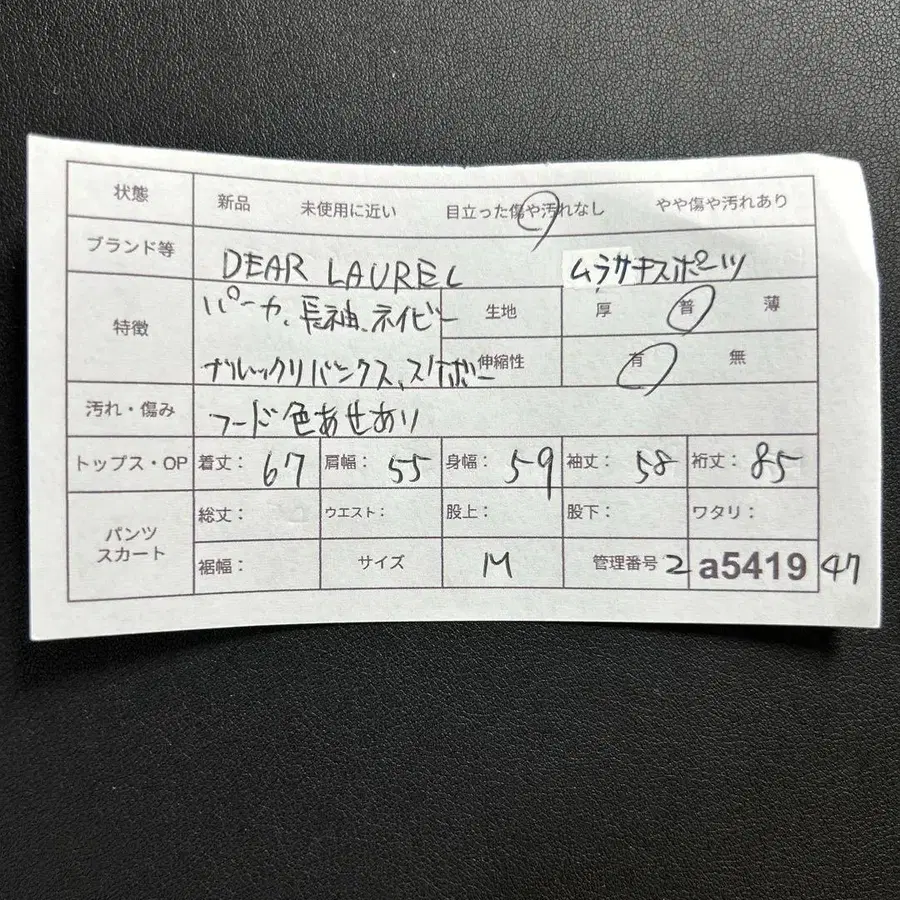 状態 新品 未使用に近い 目立った傷や汚れなし やや傷や汚れあり
ブランド等 DEAR LAUREL ムラサキスポーツ
特徴 パーカ、長袖、ネイビー 生地 厚 普 薄
ブルックリバンクス、スケボー 伸縮性 有 無
汚れ・傷み フード色あせあり
トップス・OP 着丈: 67 肩幅: 55 身幅: 59 袖丈: 58 裄丈: 85
パンツ スカート 総丈: ウエスト: 股上: 股下: ワタリ:
裾幅: サイズ M 管理番号 2 a5419 47